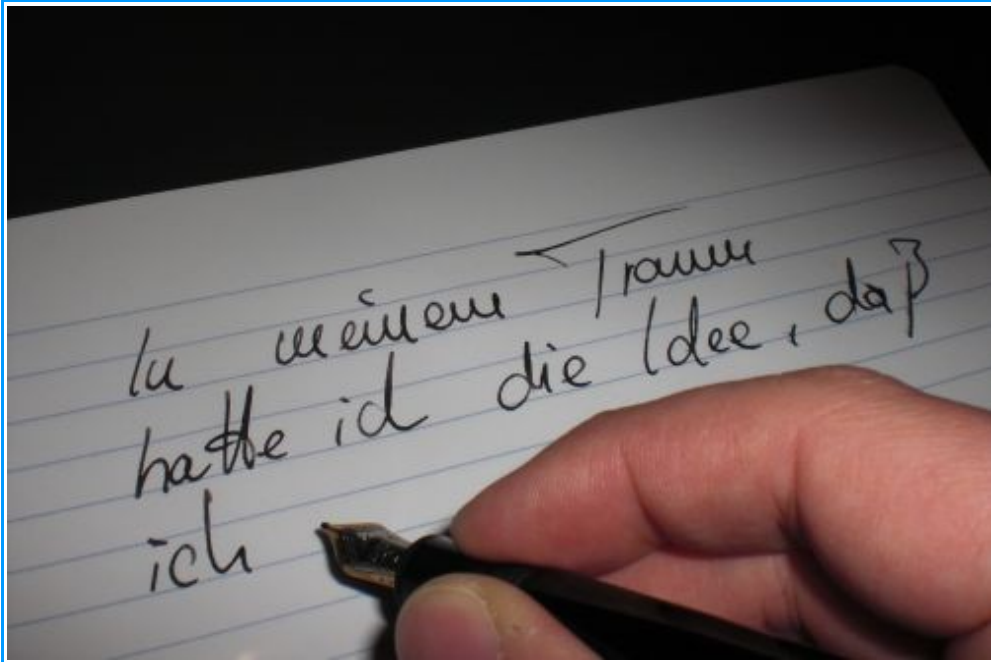 In meinem Traum
hatte ich die Idee, daß
ich